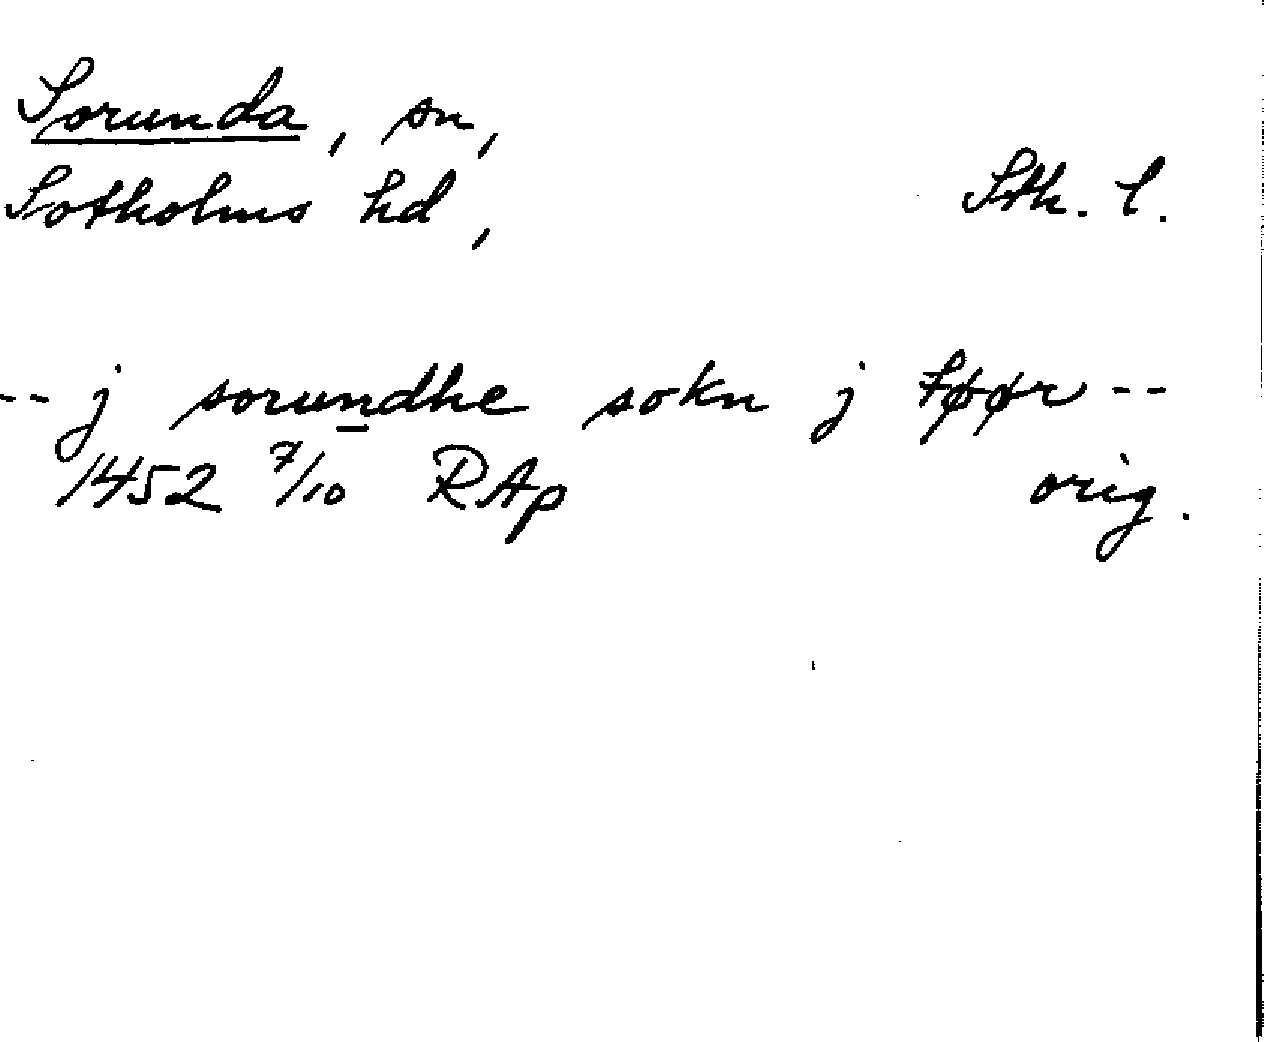 Sorunda, sn,
Sotholms hd, Sth. l.
-- j sorundhe sokn j tøør --
1452 7/10 RAp orig.